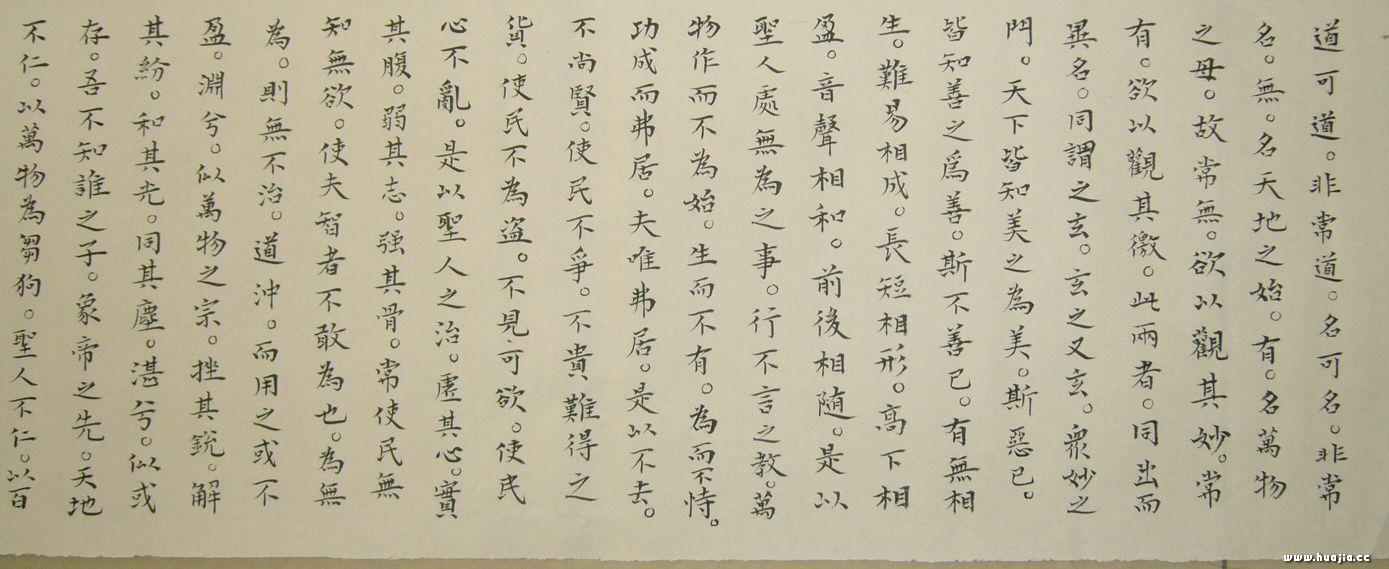 道可道。非常道。名可名。非常
名。無。名天地之始。有。名萬物
之母。故常無。欲以觀其妙。常
有。欲以觀其徼。此兩者。同出而
異名。同謂之玄。玄之又玄。衆妙之
門。天下皆知美之為美。斯惡已。
皆知善之爲善。斯不善已。有無相
生。難易相成。長短相形。高下相
盈。音聲相和。前後相隨。是以
聖人處無為之事。行不言之教。萬
物作而不為始。生而不有。為而不恃。
功成而弗居。夫唯弗居。是以不去。
不尚賢。使民不爭。不貴難得之
貨。使民不為盜。不見可欲。使民
心不亂。是以聖人之治。虛其心。實
其腹。弱其志。强其骨。常使民無
知無欲。使夫智者不敢為也。為無
為。則無不治。道沖。而用之或不
盈。淵兮。似萬物之宗。挫其銳。解
其紛。和其光。同其塵。湛兮。似或
存。吾不知誰之子。象帝之先。天地
不仁。以萬物為芻狗。聖人不仁。以百
www.huajia.cc